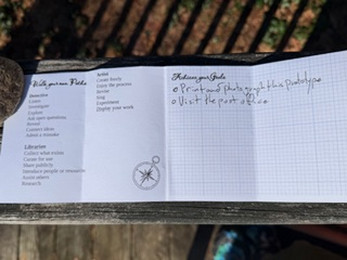 Write your own Paths
Detective
Listen
Investigate
Explore
Ask open questions
Reveal
Connect ideas
Admit a mistake
Librarian
Collect what exists
Curate for use
Share publicly
Introduce people or resources
Assist others
Research
Artist
Create freely
Enjoy the process
Devise
Sing
Experiment
Display your work
Achieve your Goals
o Print and photograph this prototype
o Visit the post office